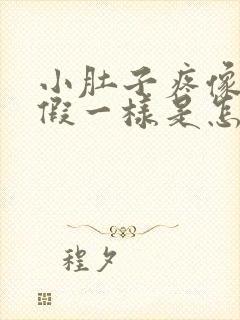 小肚子疼像
假一样是怎
程夕